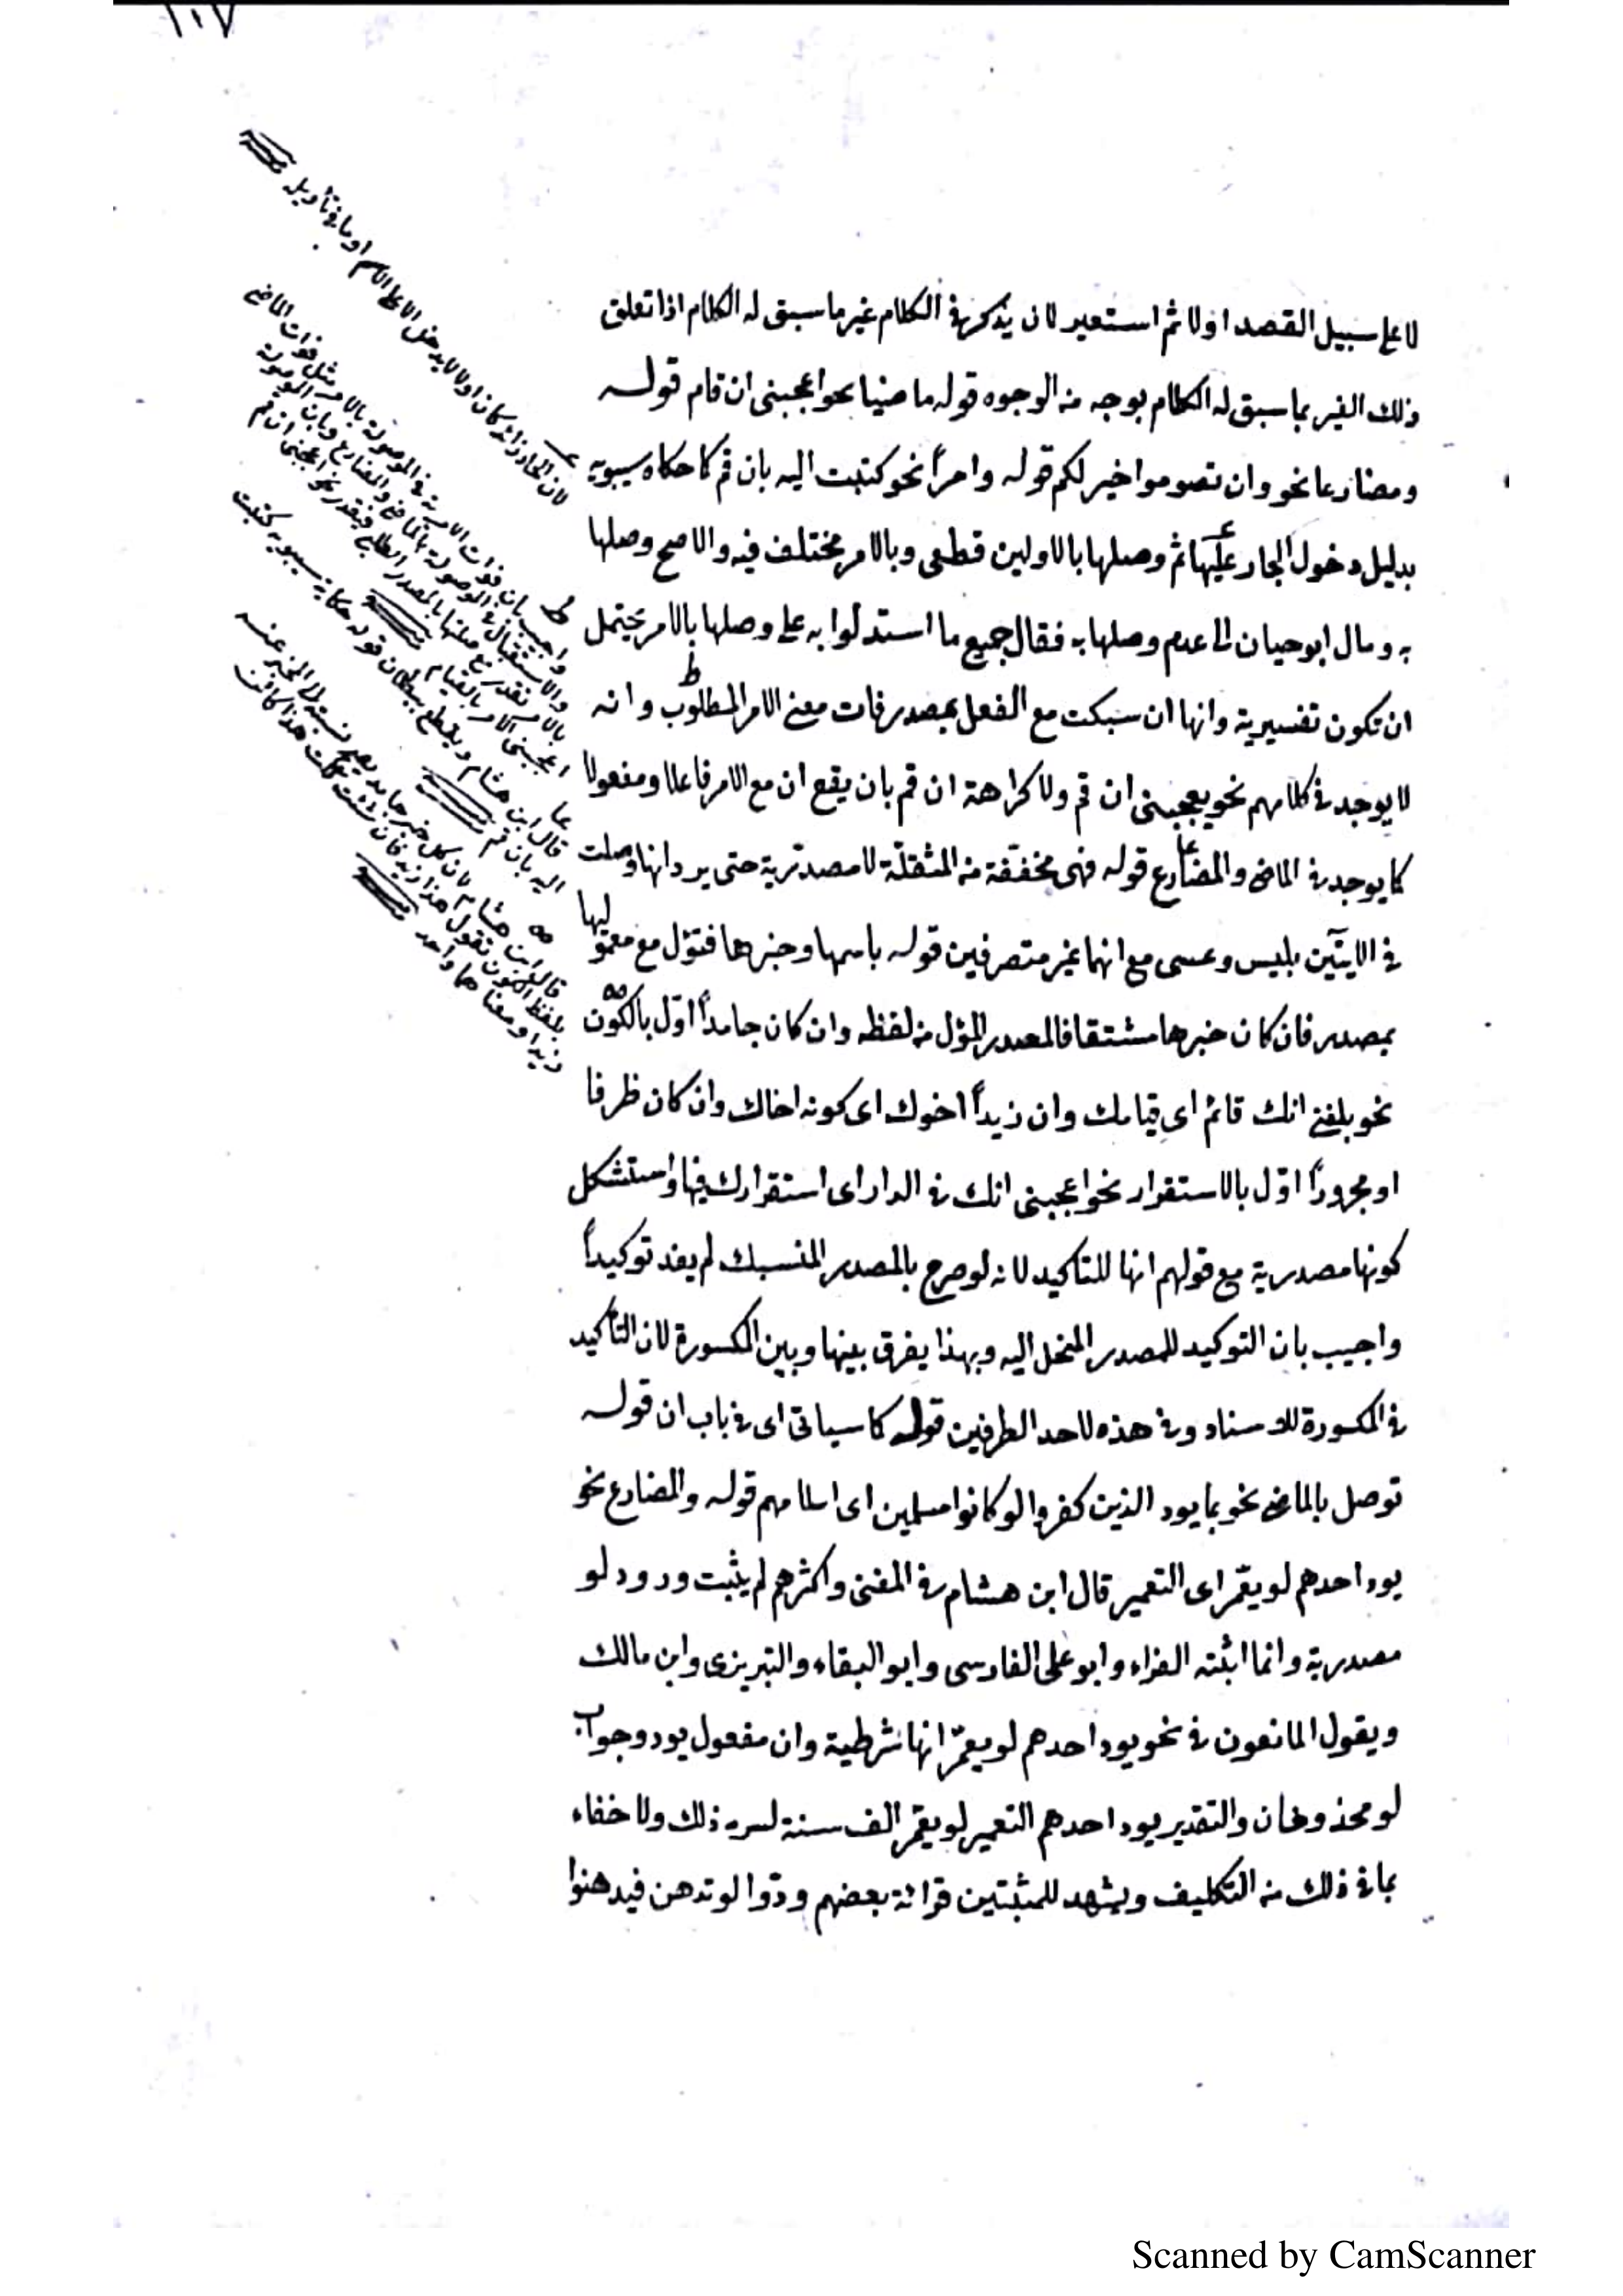 ١٠٧
لا على سبيل القصد اولا ثم استعير لان يذكر في الكلام غير ما سبق له الكلام اذا تعلق
ذلك الغير بما سبق له الكلام بوجه من الوجوه قوله ماضيا نحو اعجبنى ان قام قوله
ومضارعا نحو وان تصوموا خير لكم قوله وامراً نحو كتبت اليه بان قم كما حكاه سيبويه
بدليل دخول الجار عليها ثم وصلها بالاولين قطعى وبالامر مختلف فيه والاصح وصلها
به ومال ابو حيان الى عدم وصلها به فقال جميع ما استدلوا به على وصلها بالامر يحتمل
ان تكون تفسيرية وانها ان سبكت مع الفعل بمصدر فات معنى الامر المطلوب وانه
لا يوجد في كلامهم نحو يعجبنى ان قم ولا كراهة ان قم بان يقع ان مع الامر فاعلا ومفعولا
كما يوجد في الماضى والمضارع قوله فهى مخففة من المثقلة لا مصدرية حتى يرد انها وصلت
في الايتين بليس وعسى مع انهما غير متصرفين قوله باسمها وخبرها فتؤل مع معموليها
بمصدر فان كان خبرها مشتقا فالمصدر المؤل من لفظه وان كان جامداً اوّل بالكون
نحو بلغنى انك قائم اى قيامك وان زيداً اخوك اى كونه اخاك وان كان ظرفا
او مجروراً اوّل بالاستقرار نحو اعجبنى انك في الدار اى استقرارك فيها واستشكل
كونها مصدرية مع قولهم انها للتاكيد لانه لو صرح بالمصدر المنسبك لم يفد توكيداً
واجيب بان التوكيد للمصدر المنحل اليه وبهذا يفرق بينها وبين المكسورة لان التأكيد
في المكسورة للاسناد وفي هذه لاحد الطرفين قوله كما سياتى اى في باب ان قوله
توصل بالماضى نحو بما يود الذين كفروا لو كانوا مسلمين اى اسلامهم قوله والمضارع نحو
يود احدهم لو يعمّر اى التعمير قال ابن هشام في المغنى واكثرهم لم يثبت ورود لو
مصدرية وانما اثبته الفراء وابو على الفارسى وابو البقاء والتبريزى وابن مالك
ويقول المانعون في نحو يود احدهم لو يعمّر انها شرطية وان مفعول يود وجواب
لو محذوفان والتقدير يود احدهم التعمير لو يعمّر الف سنة لسره ذلك ولا خفاء
بما في ذلك من التكليف ويشهد للمثبتين قرائة بعضهم ودّوا لو تدهن فيدهنوا
لان الجار زائدا كان اولا لا يدخل الا على الاسم او ما في تأويله
واجيب بان فوات الامرية في الموصولة بالامر مثل فوات الماضى
والاستقبال في الموصولة بالماضى والمضارع وبان الموصولة
بالامر تقدر مع صلتها بالمصدر الطلبى فيقدر نحو اعجبنى ان قم
اعجبنى الامر بالقيام
قال ابن هشام ويقطع ببطلان قوله حكاية سيبويه كتبت
اليه بان قم
قال ابن هشام بان كل خبر جامد يصح نسبته الى المخبر عنه
بلفظ الكون تقول هذا زيد فان شئت قلت هذا كائن
زيدا ومعناهما واحد
Scanned by CamScanner